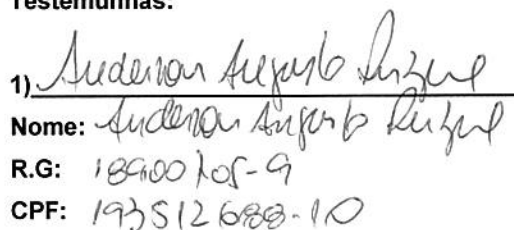 Testemunhas:
1) Anderson Augusto
Nome: Anderson Augusto
R.G: 18900105-9
CPF: 193512688-10